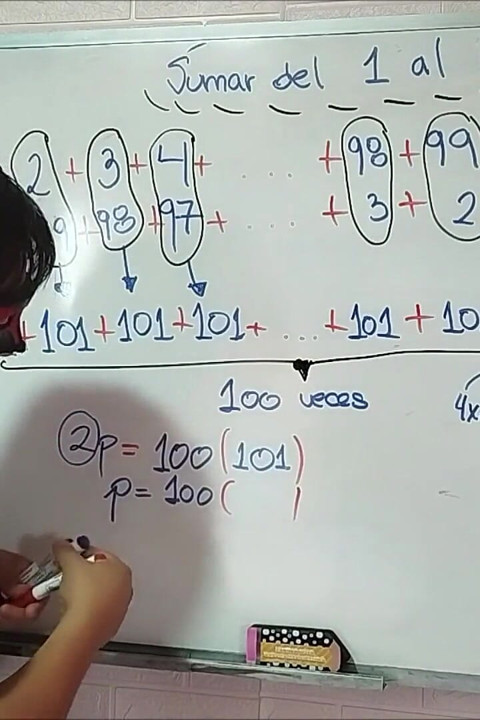 Sumar del 1 al
2 + 3 + 4 + .... + 98 + 99
9 + 98 + 97 + .... + 3 + 2
+101+101+101+ ... +101 + 10
100 veces
4x
2p = 100(101)
p = 100( )